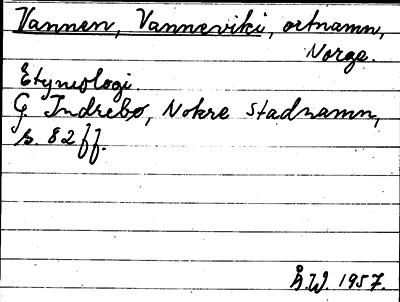 Vannen, Vanneviki, ortnamn,
Norge.
Etymologi.
G. Indrebø, Nokre stadnamn,
s. 82 ff.
Å.W. 1957.